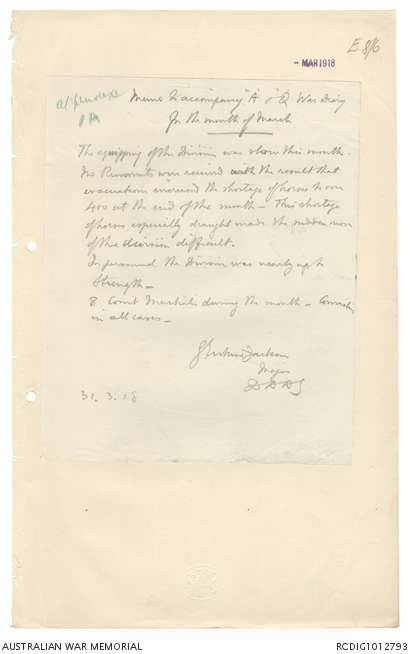 E 8/6
- MAR 1918
appendix
1A
Memo to accompany "A" & "Q" War Diary
for the month of March
The equipping of the Division was slow this month.
No Remounts were received with the result that
evacuations increased the shortage of horses to over
400 at the end of the month - This shortage
of horses especially draught made the sudden move
of the division difficult.
In personnel the Division was nearly up to
Strength -
8 Court Martials during the month - Conviction
in all cases -
Jackson
Major
31. 3. 18
AUSTRALIAN WAR MEMORIAL
RCDIG1012793